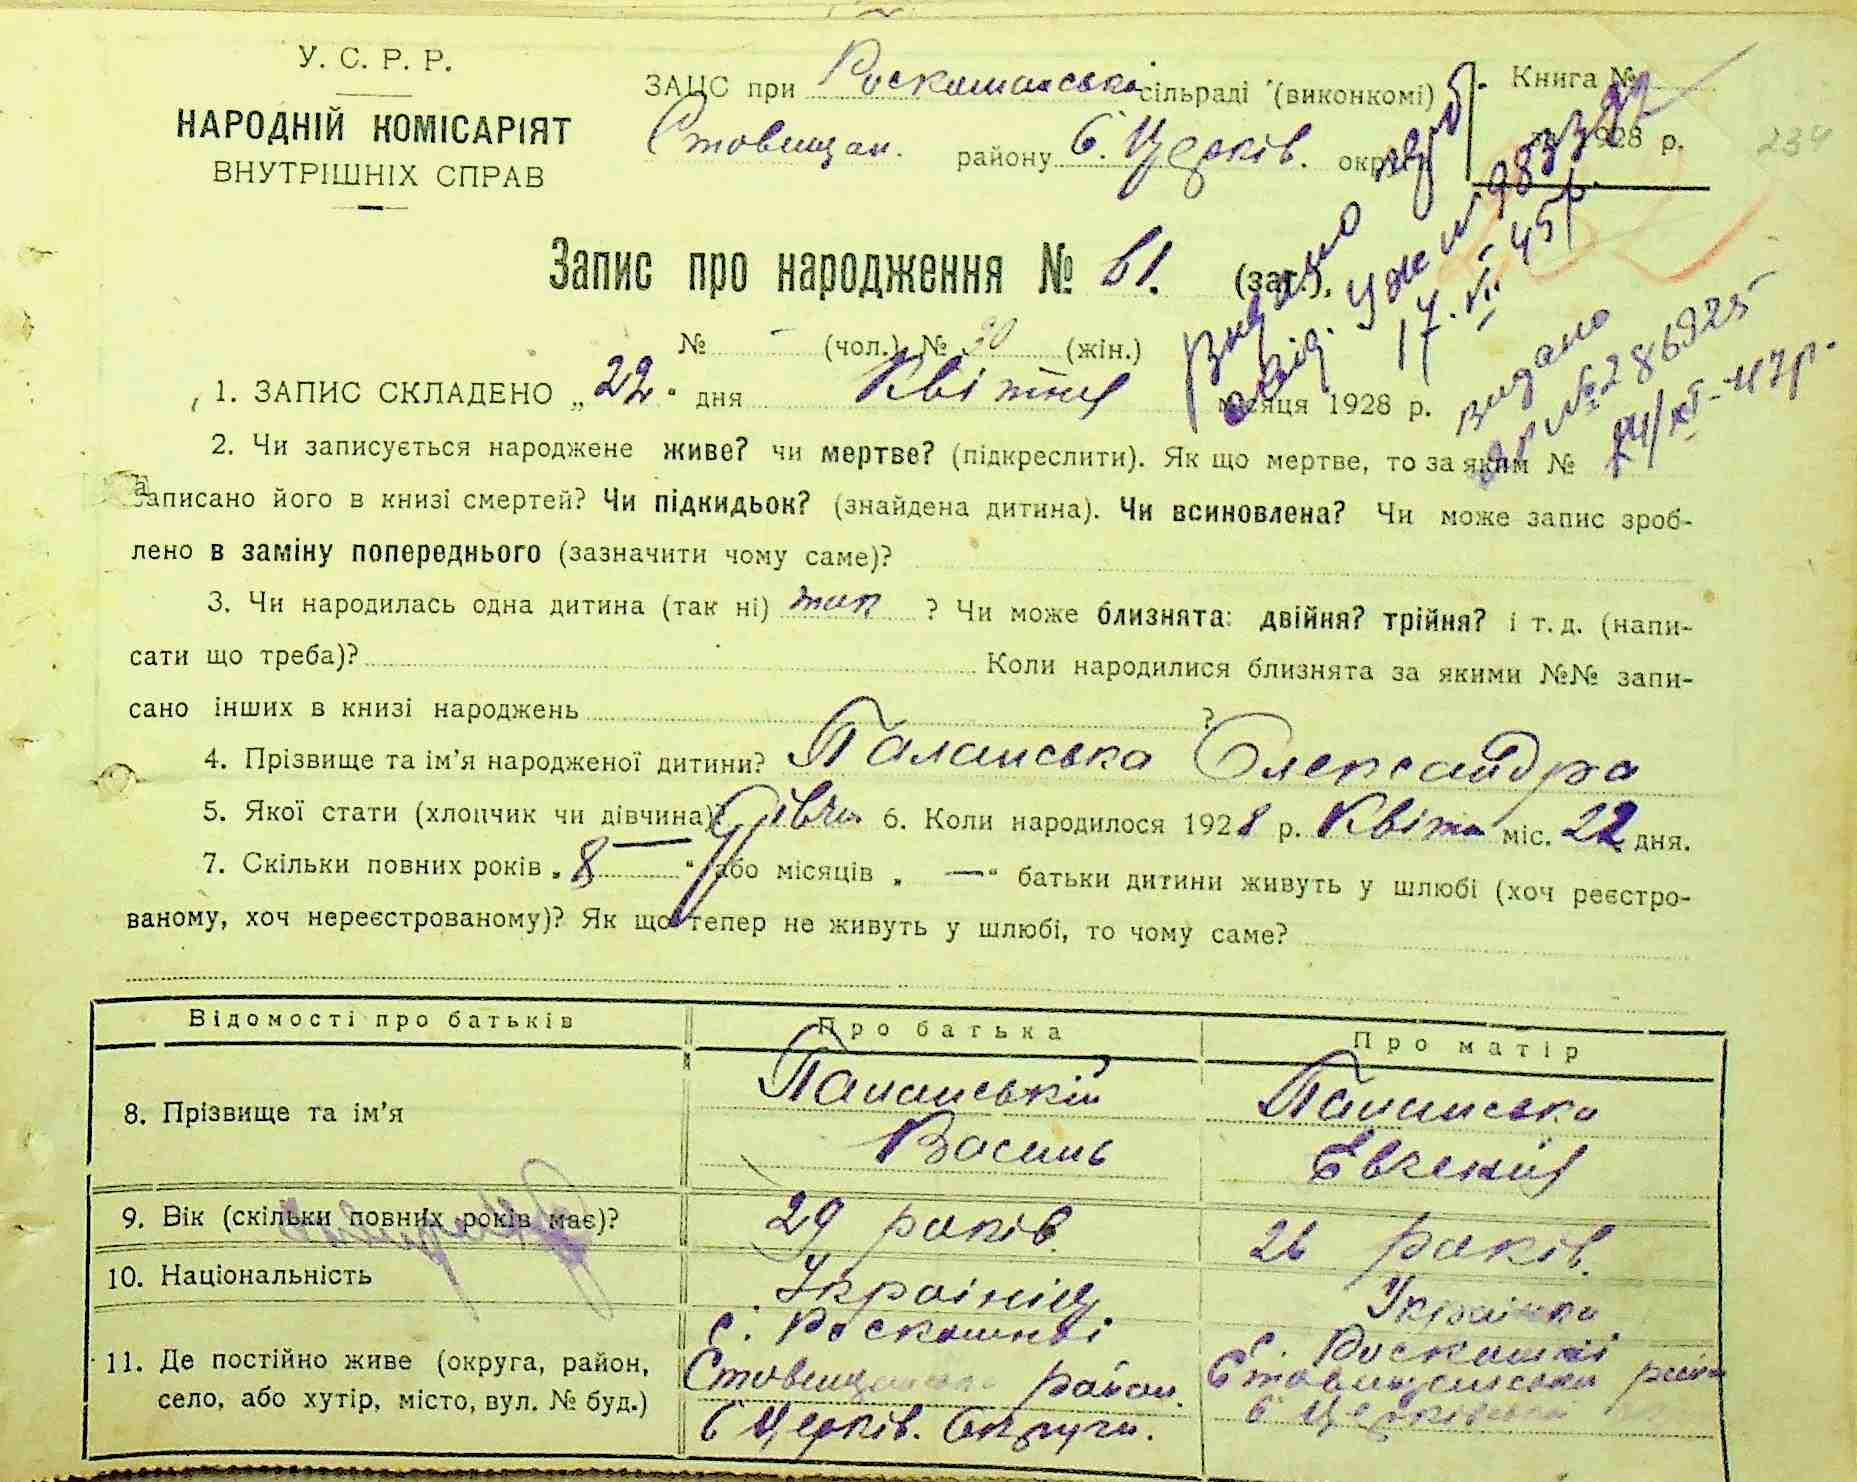 У. С. Р. Р.
НАРОДНІЙ КОМІСАРІЯТ
ВНУТРІШНІХ СПРАВ
ЗАЦС при Роскошанські сільраді (виконкомі)
Ставищан. району Б. Церків. окр
Книга №
1928 р.
234
Запис про народження № 61. (заг.),
№ - (чол.) № 30 (жін.)
Видано
свід.
17. VII 45 р.
видано
№ 286925
1. ЗАПИС СКЛАДЕНО „22“ дня Квітня місяця 1928 р.
2. Чи записується народжене живе? чи мертве? (підкреслити). Як що мертве, то за яким №
записано його в книзі смертей? Чи підкидьок? (знайдена дитина). Чи всиновлена? Чи може запис зроб-
лено в заміну попереднього (зазначити чому саме)?
3. Чи народилась одна дитина (так ні) так ? Чи може близнята: двійня? трійня? і т. д. (напи-
сати що треба)? Коли народилися близнята за якими №№ запи-
сано інших в книзі народжень ?
4. Прізвище та ім'я народженої дитини? Паланська Олександра
5. Якої стати (хлопчик чи дівчина)? дівчи 6. Коли народилося 1928 р. Квітн міс. 22 дня.
7. Скільки повних років „8“ або місяців „—“ батьки дитини живуть у шлюбі (хоч реєстро-
ваному, хоч нереєстрованому)? Як що тепер не живуть у шлюбі, то чому саме?
Відомості про батьків Про батька Про матір
8. Прізвище та ім'я Паланській Василь Паланська Євгенія
9. Вік (скільки повних років має)? 29 років. 26 років.
10. Національність Українець Українка
11. Де постійно живе (округа, район,
село, або хутір, місто, вул. № буд.)
с. Роскошні
Ставищанськ район.
Б Церків. Округи.
с. Роскошні
Ставищанськи район
Б Церківської